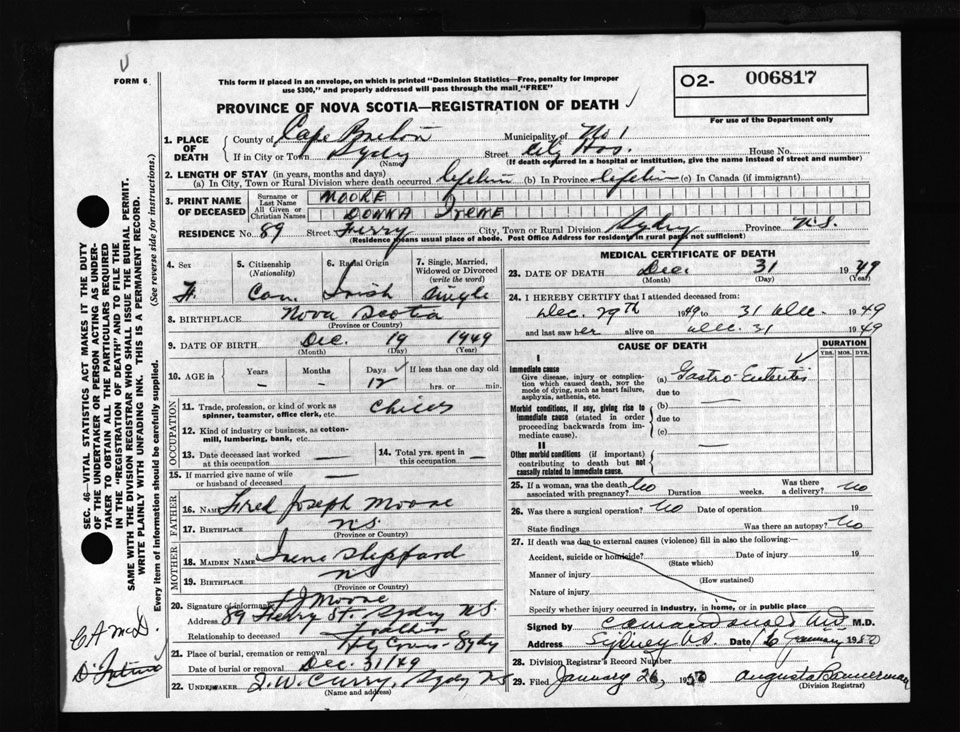 FORM 6
This form if placed in an envelope, on which is printed "Dominion Statistics—Free, penalty for improper
use $300," and properly addressed will pass through the mail "FREE"
O2- 006817
PROVINCE OF NOVA SCOTIA—REGISTRATION OF DEATH
For use of the Department only
1. PLACE OF DEATH
County of Cape Breton Municipality of No 1
If in City or Town Sydy Street City Hos. House No.
(Name) (If death occurred in a hospital or institution, give the name instead of street and number)
2. LENGTH OF STAY (in years, months and days)
(a) In City, Town or Rural Division where death occurred lifetime (b) In Province lifetime (c) In Canada (if immigrant)
3. PRINT NAME OF DECEASED
Surname or Last Name MOORE
All Given or Christian Names DONNA Irene
RESIDENCE No. 89 Street Ferry City, Town or Rural Division Sydney Province N.S.
(Residence means usual place of abode. Post Office Address for residents in rural parts not sufficient)
4. Sex F.
5. Citizenship (Nationality) Can.
6. Racial Origin Irish
7. Single, Married, Widowed or Divorced (write the word) Single
8. BIRTHPLACE Nova Scotia
(Province or Country)
9. DATE OF BIRTH Dec. 19 1949
(Month) (Day) (Year)
10. AGE in Years — Months — Days 12 If less than one day old
hrs. or min.
OCCUPATION
11. Trade, profession, or kind of work as spinner, teamster, office clerk, etc.
12. Kind of industry or business, as cotton-mill, lumbering, bank, etc. —
13. Date deceased last worked at this occupation —
14. Total yrs. spent in this occupation —
15. If married give name of wife or husband of deceased —
FATHER
16. NAME Fred Joseph Moore
17. BIRTHPLACE N.S.
(Province or Country)
MOTHER
18. MAIDEN NAME Irene Sheppard
19. BIRTHPLACE N.S.
(Province or Country)
20. Signature of informant F J Moore
Address 89 Ferry St. Sydney N.S.
Relationship to deceased Father
21. Place of burial, cremation or removal Holy Cross - Sydy
Date of burial or removal Dec. 31/49
22. UNDERTAKER J. W. Curry, Sydy NS
(Name and address)
MEDICAL CERTIFICATE OF DEATH
23. DATE OF DEATH Dec. 31 1949
(Month) (Day) (Year)
24. I HEREBY CERTIFY that I attended deceased from:
Dec. 29th 1949 to 31 Dec. 1949
and last saw her alive on Dec. 31 1949
CAUSE OF DEATH DURATION
YRS. MOS. DYS.
I
Immediate cause
Give disease, injury or complication which caused death, not the mode of dying, such as heart failure, asphyxia, asthenia, etc.
(a) Gastro-Enteritis
due to
Morbid conditions, if any, giving rise to immediate cause (stated in order proceeding backwards from immediate cause).
(b) —
due to
(c)
II
Other morbid conditions (if important) contributing to death but not causally related to immediate cause.
25. If a woman, was the death associated with pregnancy? No Duration weeks. Was there a delivery? No
26. Was there a surgical operation? No Date of operation 19
State findings Was there an autopsy? No
27. If death was due to external causes (violence) fill in also the following:—
Accident, suicide or homicide? Date of injury 19
(State which)
Manner of injury
(How sustained)
Nature of injury
Specify whether injury occurred in industry, in home, or in public place
Signed by C A MacDonald MD M.D.
Address Sydney N.S. Date 16 January 1950
28. Division Registrar's Record Number
29. Filed January 26, 1950 Augusta Bannerman
(Division Registrar)
SEC. 46—VITAL STATISTICS ACT MAKES IT THE DUTY
OF THE UNDERTAKER OR PERSON ACTING AS UNDERTAKER
TO OBTAIN ALL THE PARTICULARS REQUIRED
IN THE "REGISTRATION OF DEATH" AND TO FILE THE
SAME WITH THE DIVISION REGISTRAR WHO SHALL ISSUE THE BURIAL PERMIT.
WRITE PLAINLY WITH UNFADING INK. THIS IS A PERMANENT RECORD.
Every item of information should be carefully supplied. (See reverse side for instructions.)
C A McD.